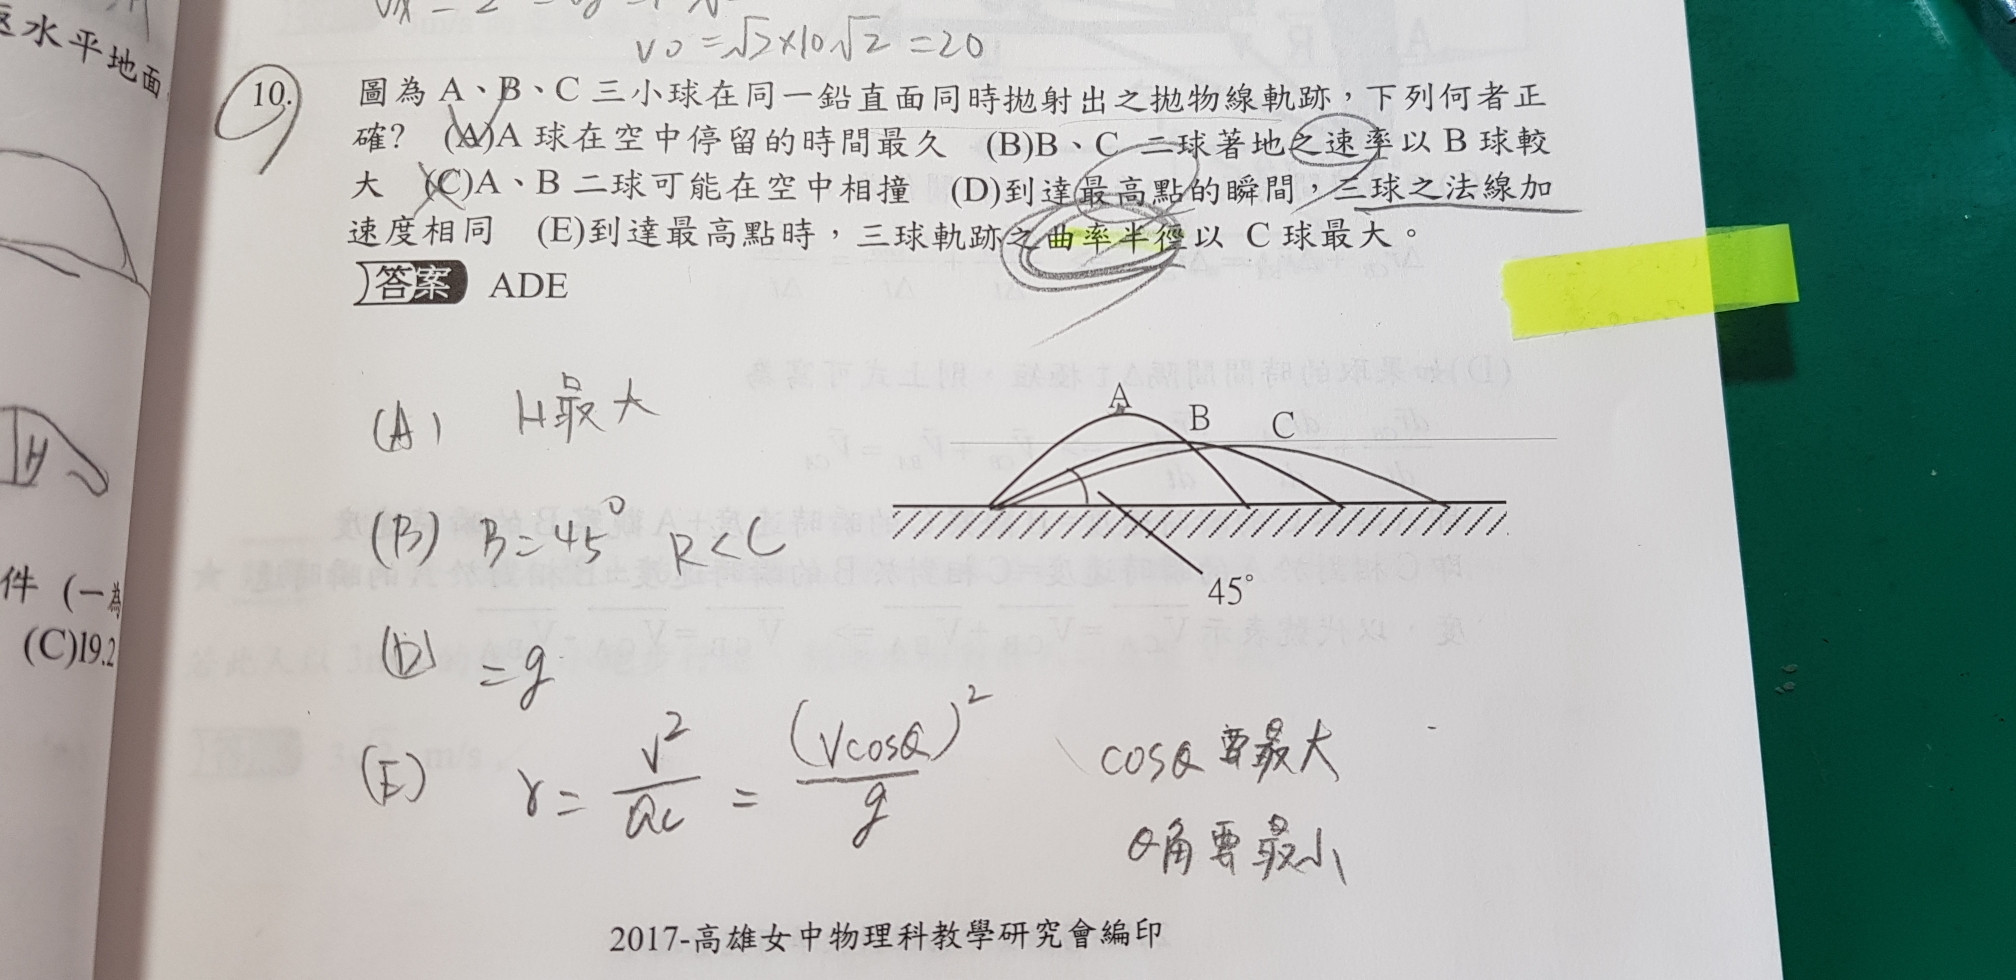 v0 = √2×10√2 = 20
逐水平地面
10. 圖為 A、B、C 三小球在同一鉛直面同時拋射出之拋物線軌跡,下列何者正
確? (A)A 球在空中停留的時間最久 (B)B、C 二球著地之速率以 B 球較
大 (C)A、B 二球可能在空中相撞 (D)到達最高點的瞬間,三球之法線加
速度相同 (E)到達最高點時,三球軌跡之曲率半徑以 C 球最大。
答案 ADE
(A) H最大
A
B C
(B) B=45° B<C
45°
H
件 (一為
(C)19.2
(D) =g
(E) r = v²/ac = (vcosθ)²/g
cosθ要最大
θ角要最小
2017-高雄女中物理科教學研究會編印